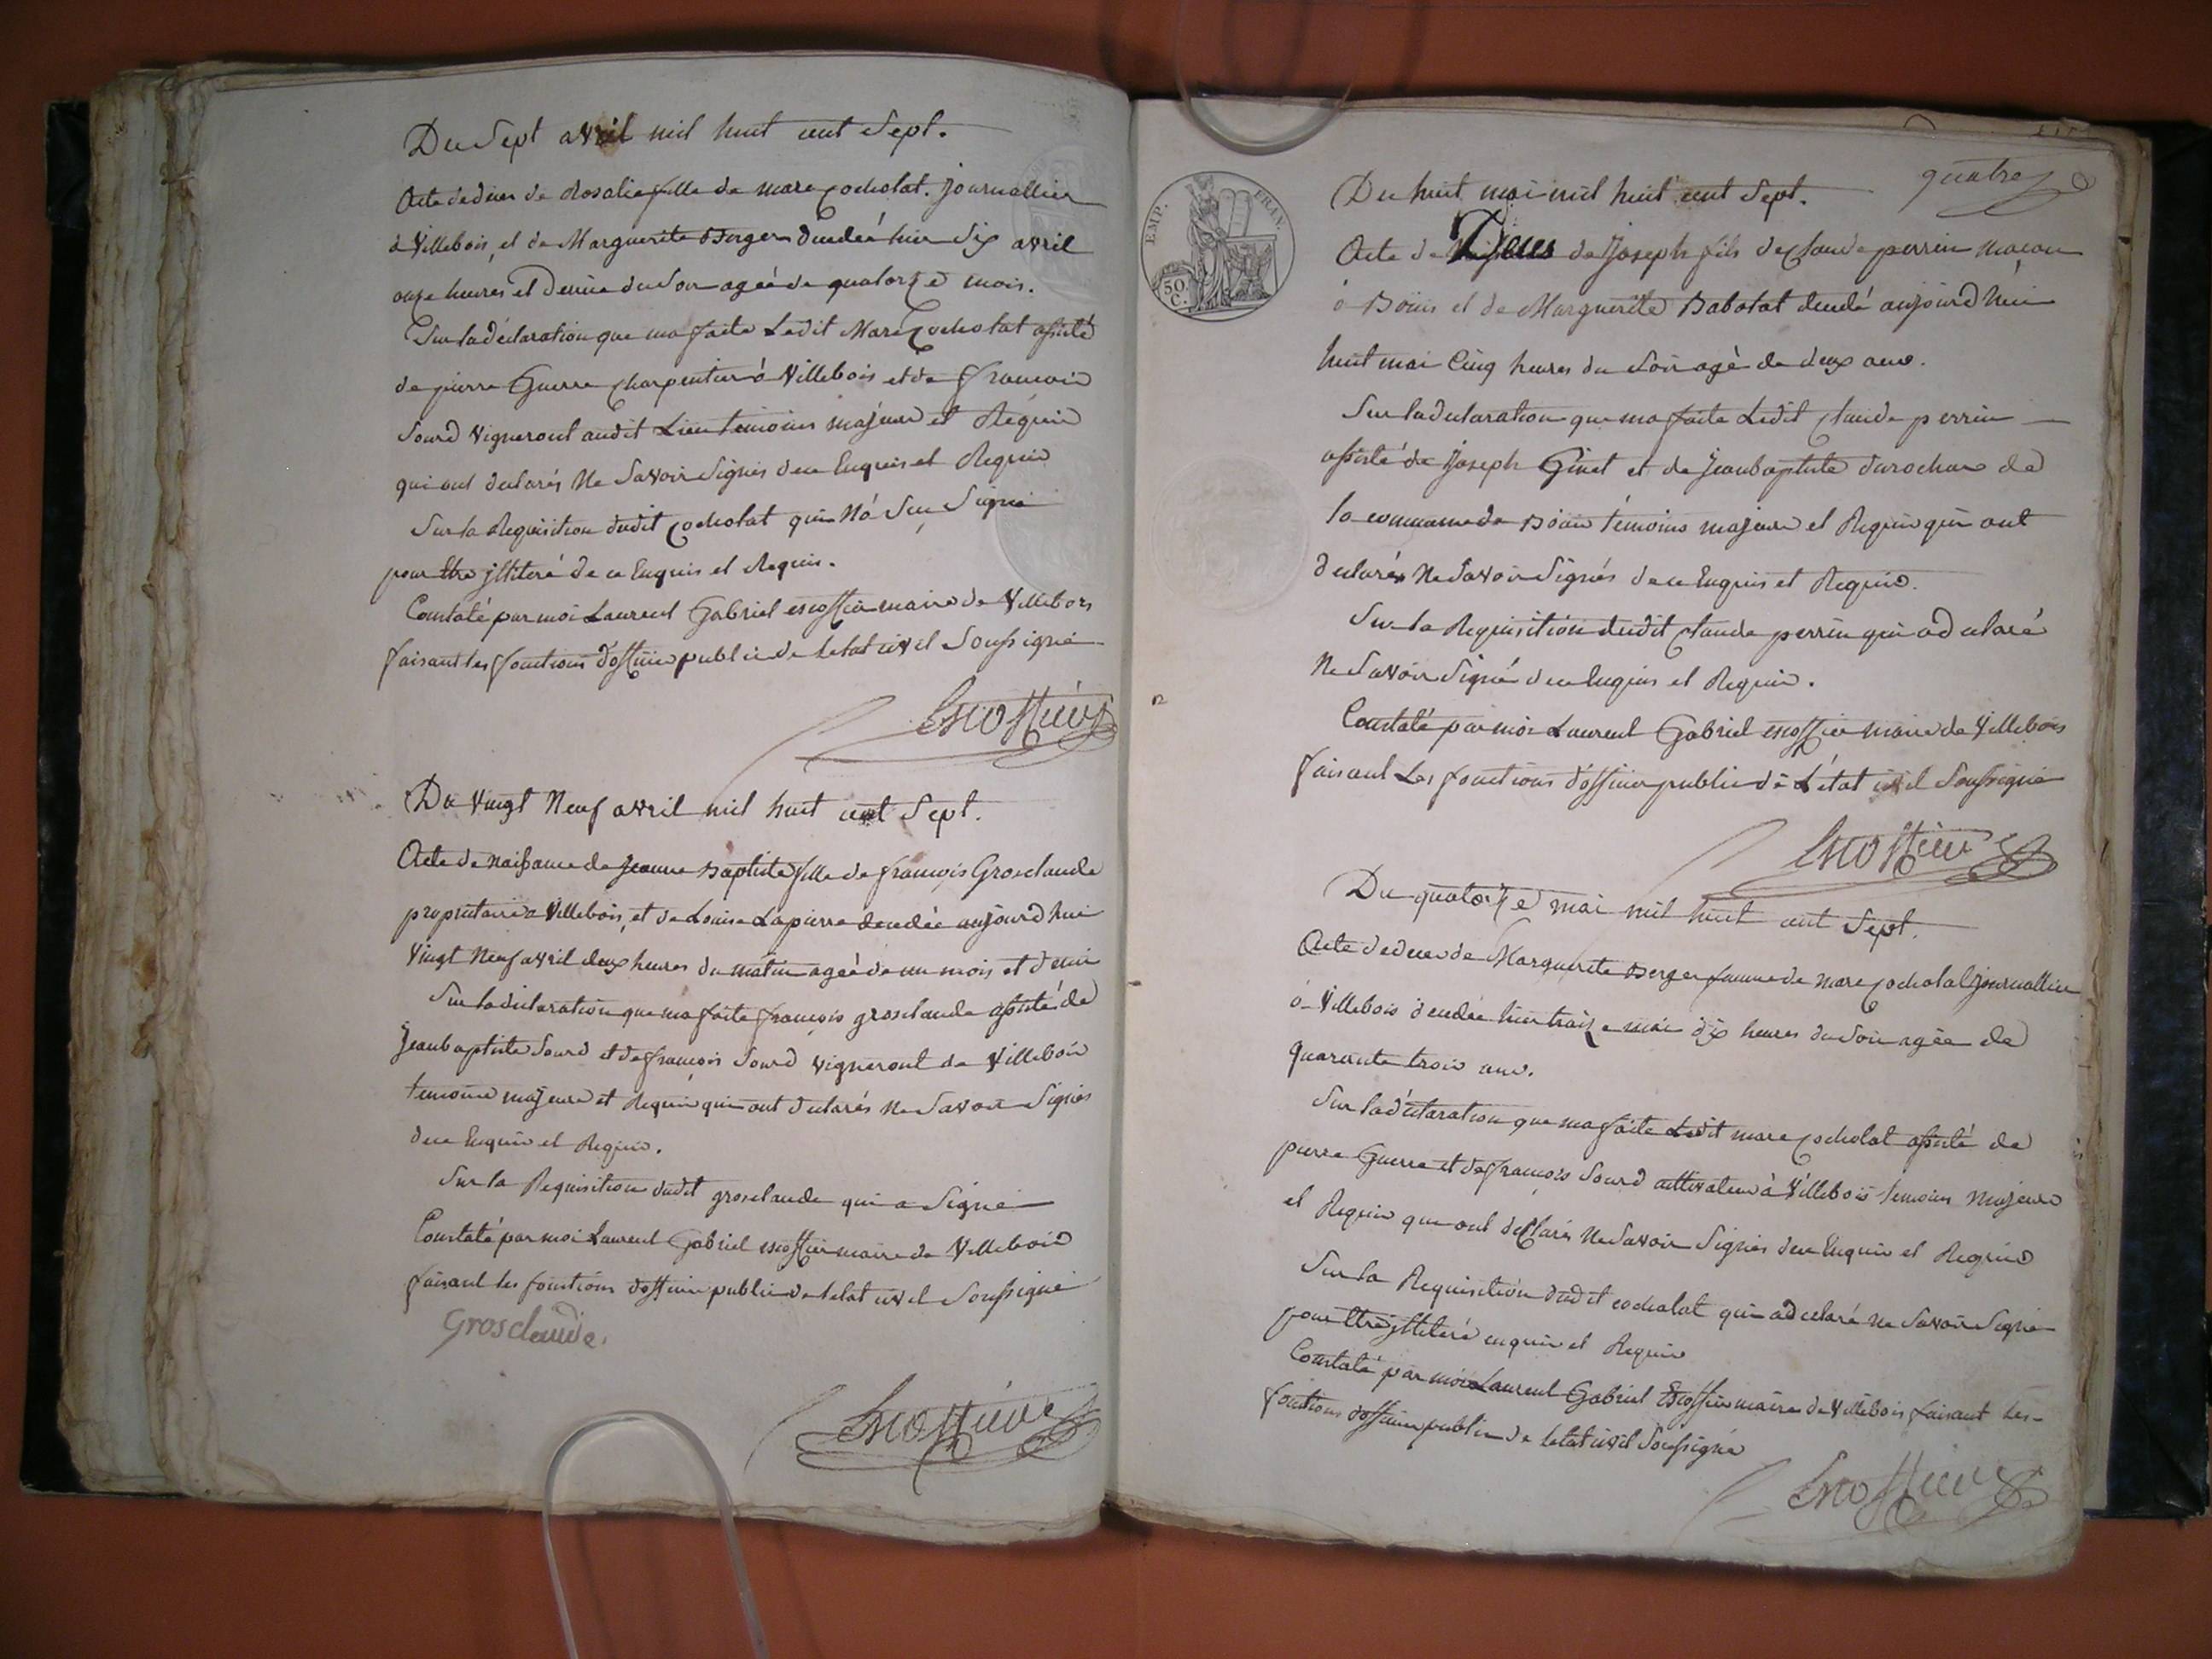 Du Sept avril mil huit cent Sept.
Acte de deces de Rosalie fille de marc Cocholat. journallier
à Villebois, et de Marguerite Berger deudeé hier Six avril
onze heures et demie du Soir ageé de quatorze mois.
Sur la déclaration que ma faite Ledit Marc Cocholat assisté
de pierre Guerre charpentier à Villebois et de francois
Sourd Vigneront audit Lieu temoins majeurs et Requis
qui ont declarés Ne Savoir Signés de ce Enquis et Requis
Sur la Requisition dudit Cocholat qui N'a Seu Signé
pour Etre jlliteré de ce Enquis et Requis.
Constaté par moi Laurent Gabriel escoffier maire de Villebois
faisant les fonctions d'officier public de letat civil Soussigné
Escoffier
Du Vingt Neuf avril mil huit cent Sept.
Acte de naissance de Jeanne Baptiste fille de françois Grosclaude
propriétaire a Villebois, et de Louise Lapierre deudée aujourd'hui
Vingt Neuf avril deux heures du matin ageé de un mois et demi
Sur la déclaration que ma faite françois grosclaude assisté de
Jeanbaptiste Sourd et de françois Sourd Vigneront de Villebois
temoins majeurs et Requis qui ont declarés Ne Savoir Signés
de ce Enquis et Requis.
Sur la Requisition dudit grosclaude qui a Signé
Constaté par moi Laurent Gabriel escoffier maire de Villebois
faisant les fonctions d'officier public de letat civil Soussigné
Grosclaude.
Escoffier
quatre
EMP. FRAN.
50 C.
Du huit mai mil huit cent Sept.
Acte de Deces de Joseph fils de Claude perrin macon
à Bouis et de Marguerite Babolat deudé aujourd'hui
huit mai Cinq heures du Soir agé de deux ans.
Sur la declaration que ma faite Ledit Claude perrin
assisté de Joseph Ginet et de Jeanbaptiste durochas de
la commune de Bouis témoins majeurs et Requis qui ont
declarés Ne Savoir Signés de ce Enquis et Requis.
Sur la Requisition dudit Claude perrin qui a declaré
Ne Savoir Signé de ce Enquis et Requis.
Constaté par moi Laurent Gabriel escoffier maire de Villebois
faisant Les fonctions d'officier public de L'état civil Soussigné
Escoffier
Du quatorze mai mil huit cent Sept.
Acte de deces de Marguerite Berger femme de marc Cocholat Journallier
à Villebois deudée hier treize mai dix heures du Soir agée de
quarante trois ans.
Sur la déclaration que ma faite Ledit marc Cocholat assisté de
pierre Guerre et de françois Sourd cultivateur à Villebois temoins Majeurs
et Requis que ont declarés Ne Savoir Signés de ce Enquis et Requis
Sur la Requisition dudit cocholat qui a declaré ne Savoir Signé
pour Etre jlliteré enquis et Requis
Constaté par moi Laurent Gabriel Escoffier maire de Villebois faisant les
fonctions d'officier public de letat civil Soussigné
Escoffier